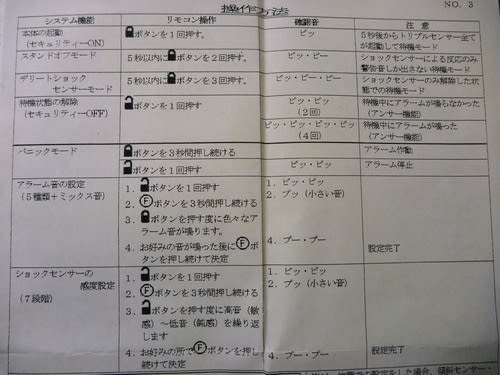 操作方法
NO. 3
システム機能 リモコン操作 確認音 注 意
本体の起動
(セキュリティーON)
ボタンを1回押す。
ピッ
5秒後からトリプルセンサー全て
が起動して待機モード
スタンドオフモード
5秒以内にボタンを2回押す。
ピッ・ピー
ショックセンサーによる反応のみ
警告音しか出さない待機モード
デリートショック
センサーモード
5秒以内にボタンを3回押す。
ピッ・ピー・ピー
ショックセンサーのみ解除した状
態での待機モード
待機状態の解除
(セキュリティーOFF)
ボタンを1回押す
ピッ・ピッ
(2回)
待機中にアラームが鳴らなかった
(アンサー機能)
ピッ・ピッ・ピッ・ピッ
(4回)
待機中にアラームが鳴った
(アンサー機能)
パニックモード
ボタンを3秒間押し続ける
アラーム作動
ボタンを1回押す
ピッ・ピッ
アラーム停止
アラーム音の設定
(5種類+ミックス音)
1. ボタンを1回押す
2. Ⓕボタンを3秒間押し続ける
3. ボタンを押す度に色々な
アラーム音が鳴ります。
4. お好みの音が鳴った後にⒻボ
タンを押し続けて決定
1. ピッ・ピッ
2. プッ(小さい音)
4. プー・プー
設定完了
ショックセンサーの
感度設定
(7段階)
1. ボタンを1回押す
2. Ⓕボタンを3秒間押し続ける
3. ボタンを押す度に高音(敏
感)~低音(鈍感)を繰り返
します
4. お好みの所でⒻボタンを押し
続けて決定
1. ピッ・ピッ
2. プッ(小さい音)
4. プー・プー
設定完了
をした場合、傾斜センサー・